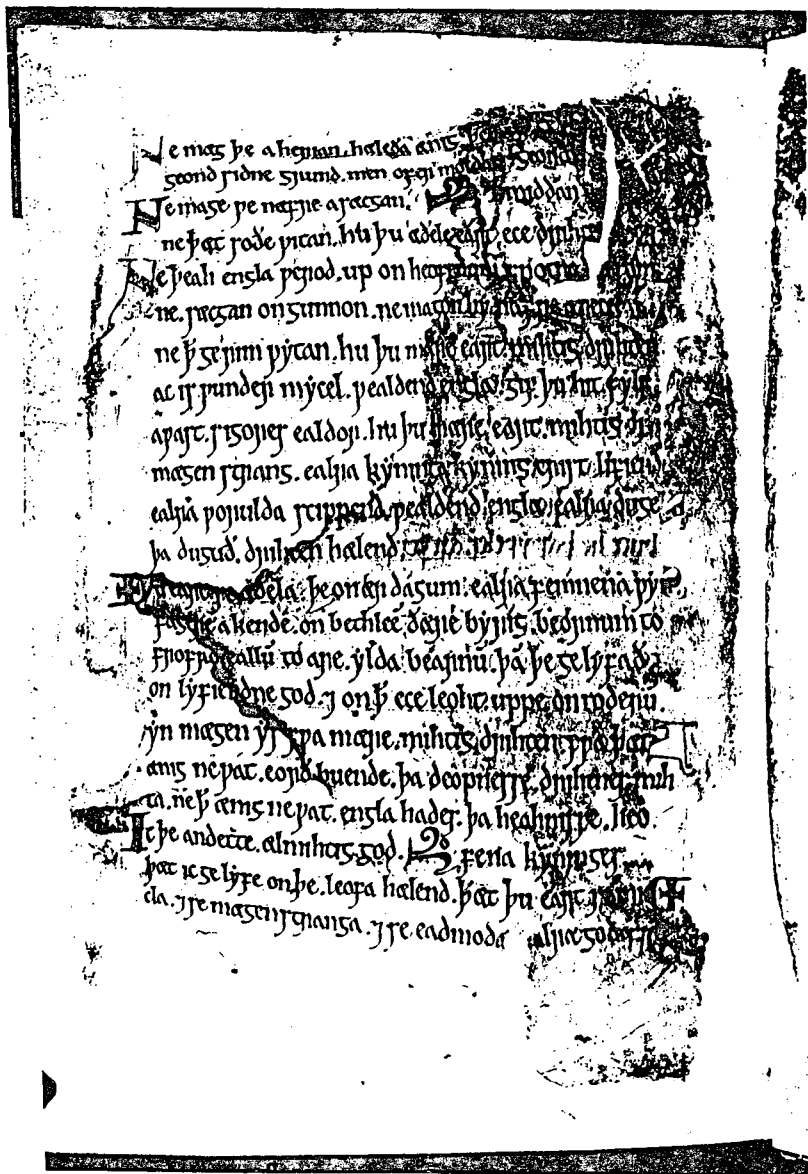 Ne mæg þe aherian. hæleða ænig
geond sidne grund. men ofer moldan. geond
Ne mage ƿe næfre asæcgan. middan
ne þæt soðe ƿitan. hu þu æðele eart. ece drihten
Ne þeah engla ƿerod. up on heofenum
ne. sæcgan ongunnon. ne magon hy næfre
ne þ gerim ƿytan. hu þu mære eart. mihtig drihten
ac is ƿunder mycel. ƿealdend engla. gif þu hit sylfa
ƿast. sigores ealdor. hu þu mære eart. mihtig
mægen strang. ealra kyninga kyning. crist lifiend
ealra ƿorulda scippend. ƿealdend engla. ealra duge
þa duguð. drihten hælend.
æðela. þe on ær dagum. ealra femnena ƿyn
fægere akende. on bethleē. ðære byrig. beornum to
frofre eallū to are. ylda bearnū. þā þe gelyfað
on lyfiendne god. ⁊ on þ ece leoht. uppe on roderū.
yn mægen ys sƿa mære. mihtig drihten sƿa þæt
ænig ne ƿat. eorð buende. þa deopnesse. drihtnes mih
ta. ne þ ænig ne ƿat. engla hades. þa heahnisse. heo
Ic þe andette. ælmihtig god. fena kyninges.
þæt ic gelyfe on þe. leofa hælend. þæt þu eart se mic
cla. ⁊ se mægen stranga. ⁊ se eadmoda ealra goda